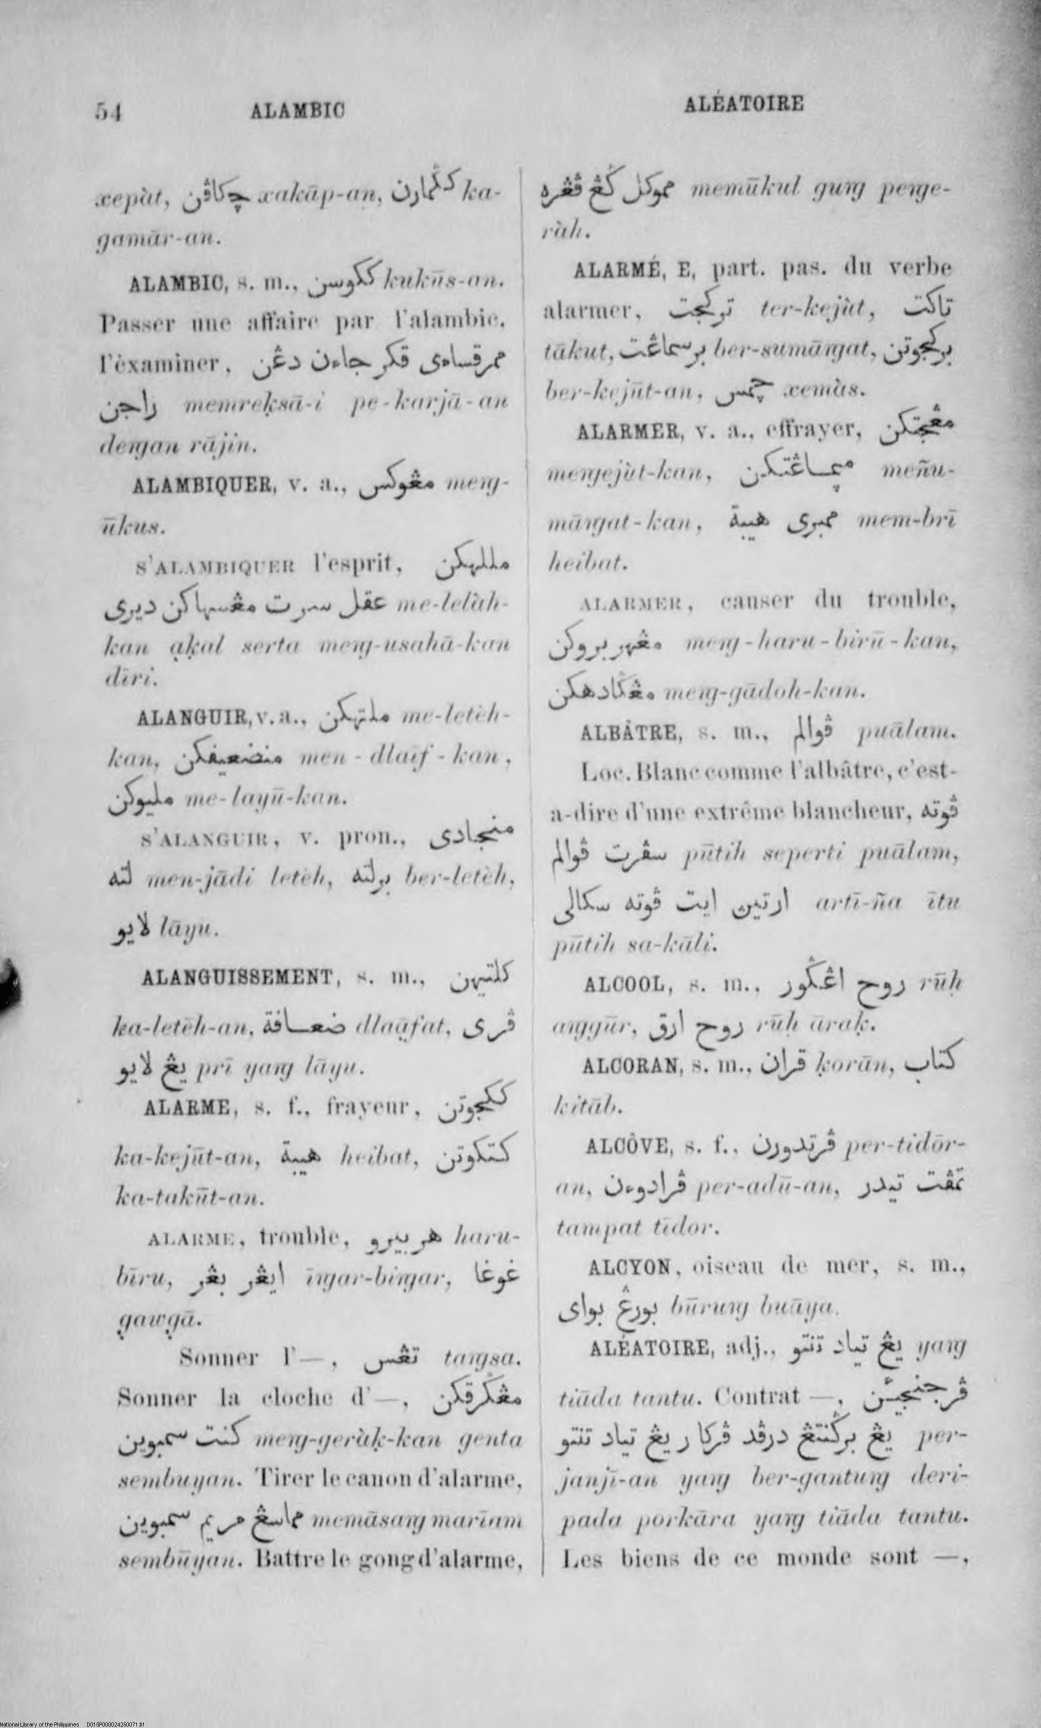 54 ALAMBIC ALÉATOIRE
xepàt, چكاڤن xakāp-an, كݢمارن ka-
gamār-an.
ALAMBIC, s. m., ككوسن kukūs-an.
Passer une affaire par l'alambic,
l'éxaminer, ممرقساءى ڤكرجاءن دڠن
راجن memreḳsā-i pe-karjā-an
deŋgan rājin.
ALAMBIQUER, v. a., مڠوكس meŋg-
ūkus.
S'ALAMBIQUER l'esprit, مللهكن
عقل سرت مڠسهاكن ديرى me-lelàh-
kan aḳal serta meŋg-usahā-kan
dīri.
ALANGUIR, v. a., ملتهكن me-letèh-
kan, منضعيفكن men-dlaīf-kan,
مليوكن me-layū-kan.
S'ALANGUIR, v. pron., منجادى
لته men-jādi letèh, برلته ber-letèh,
لايو lāyu.
ALANGUISSEMENT, s. m., كلتيهن
ka-letēh-an, ضعافة dlaāfat, ڤرى
يڠ لايو prī yaŋg lāyu.
ALARME, s. f., frayeur, ككجوتن
ka-kejūt-an, هيبة heibat, كتكوتن
ka-takūt-an.
ALARME, trouble, هربيرو haru-
bīru, ايڠر بڠر īŋgar-biŋgar, غوغا
gawgā.
Sonner l'—, تڠس taŋgsa.
Sonner la cloche d'—, مڠݢرقكن
كنت سمبوين meŋg-geràḳ-kan genta
sembuyan. Tirer le canon d'alarme,
مماسڠ مريم سمبوين memāsaŋg marīam
sembūyan. Battre le gong d'alarme,
مموكل ݢڠ ڤڠره memūkul guŋg peŋge-
ràh.
ALARMÉ, E, part. pas. du verbe
alarmer, تركجت ter-kejùt, تاكت
tākut, برسماڠت ber-sumāŋgat, بركجوتن
ber-kejūt-an, چمس xemàs.
ALARMER, v. a., effrayer, مڠجتكن
meŋgejùt-kan, meñu-
māŋgat-kan, ممبرى هيبة mem-brī
heibat.
ALARMER, causer du trouble,
مڠهربروكن meŋg-haru-birū-kan,
مڠݢادهكن meŋg-gādoh-kan.
ALBÂTRE, s. m., ڤوالم puālam.
Loc. Blanc comme l'albâtre, c'est-
a-dire d'une extrême blancheur, ڤوته
سڤرت ڤوالم pūtih seperti puālam,
ارتين ايت ڤوته سكالى artī-ña ītu
pūtih sa-kāli.
ALCOOL, s. m., روح اڠݢور rūḥ
aŋggūr, روح ارق rūḥ āraḳ.
ALCORAN, s. m., قران ḳorān, كتاب
kitāb.
ALCÔVE, s. f., ڤرتدورن per-tidōr-
an, ڤرادوءن per-adū-an, تمڤت تيدر
tampat tīdor.
ALCYON, oiseau de mer, s. m.,
بورڠ بواى būruŋg buāya.
ALÉATOIRE, adj., يڠ تياد تنتو yaŋg
tiāda tantu. Contrat —, ڤرجنجيئن
يڠ برݢنتڠ درڤد ڤركار يڠ تياد تنتو per-
janjī-an yaŋg ber-gantuŋg deri-
pada porkāra yaŋg tiāda tantu.
Les biens de ce monde sont —,
National Library of the Philippines